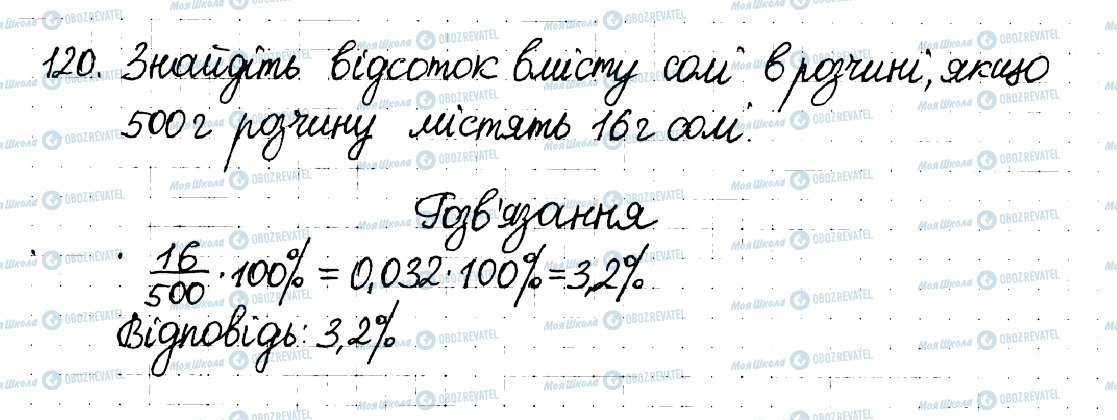 120. Знайдіть відсоток вмісту солі в розчині, якщо
500 г розчину містять 16 г солі.
Розв'язання
16/500 · 100% = 0,032 · 100% = 3,2%
Відповідь: 3,2%